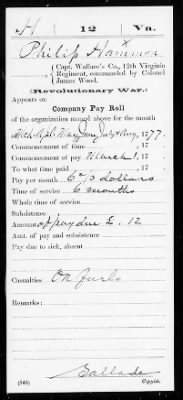 H 12 Va.
Philip Hammon
Capt. Wallace's Co., 12th Virginia
Regiment, commanded by Colonel
James Wood.
(Revolutionary War.)
Appears on
Company Pay Roll
of the organization named above for the month
of Mch, Apl, May, June, July & Aug, 1777.
Commencement of time , 17 .
Commencement of pay March 1, 17 .
To what time paid , 17 .
Pay per month 6 2/3 dollars
Time of service 6 months
Whole time of service
Subsistence
Amount of pay due £. 12
Amt. of pay and subsistence
Pay due to sick, absent
Casualties On Furlo
Remarks:
(545) Copyist.